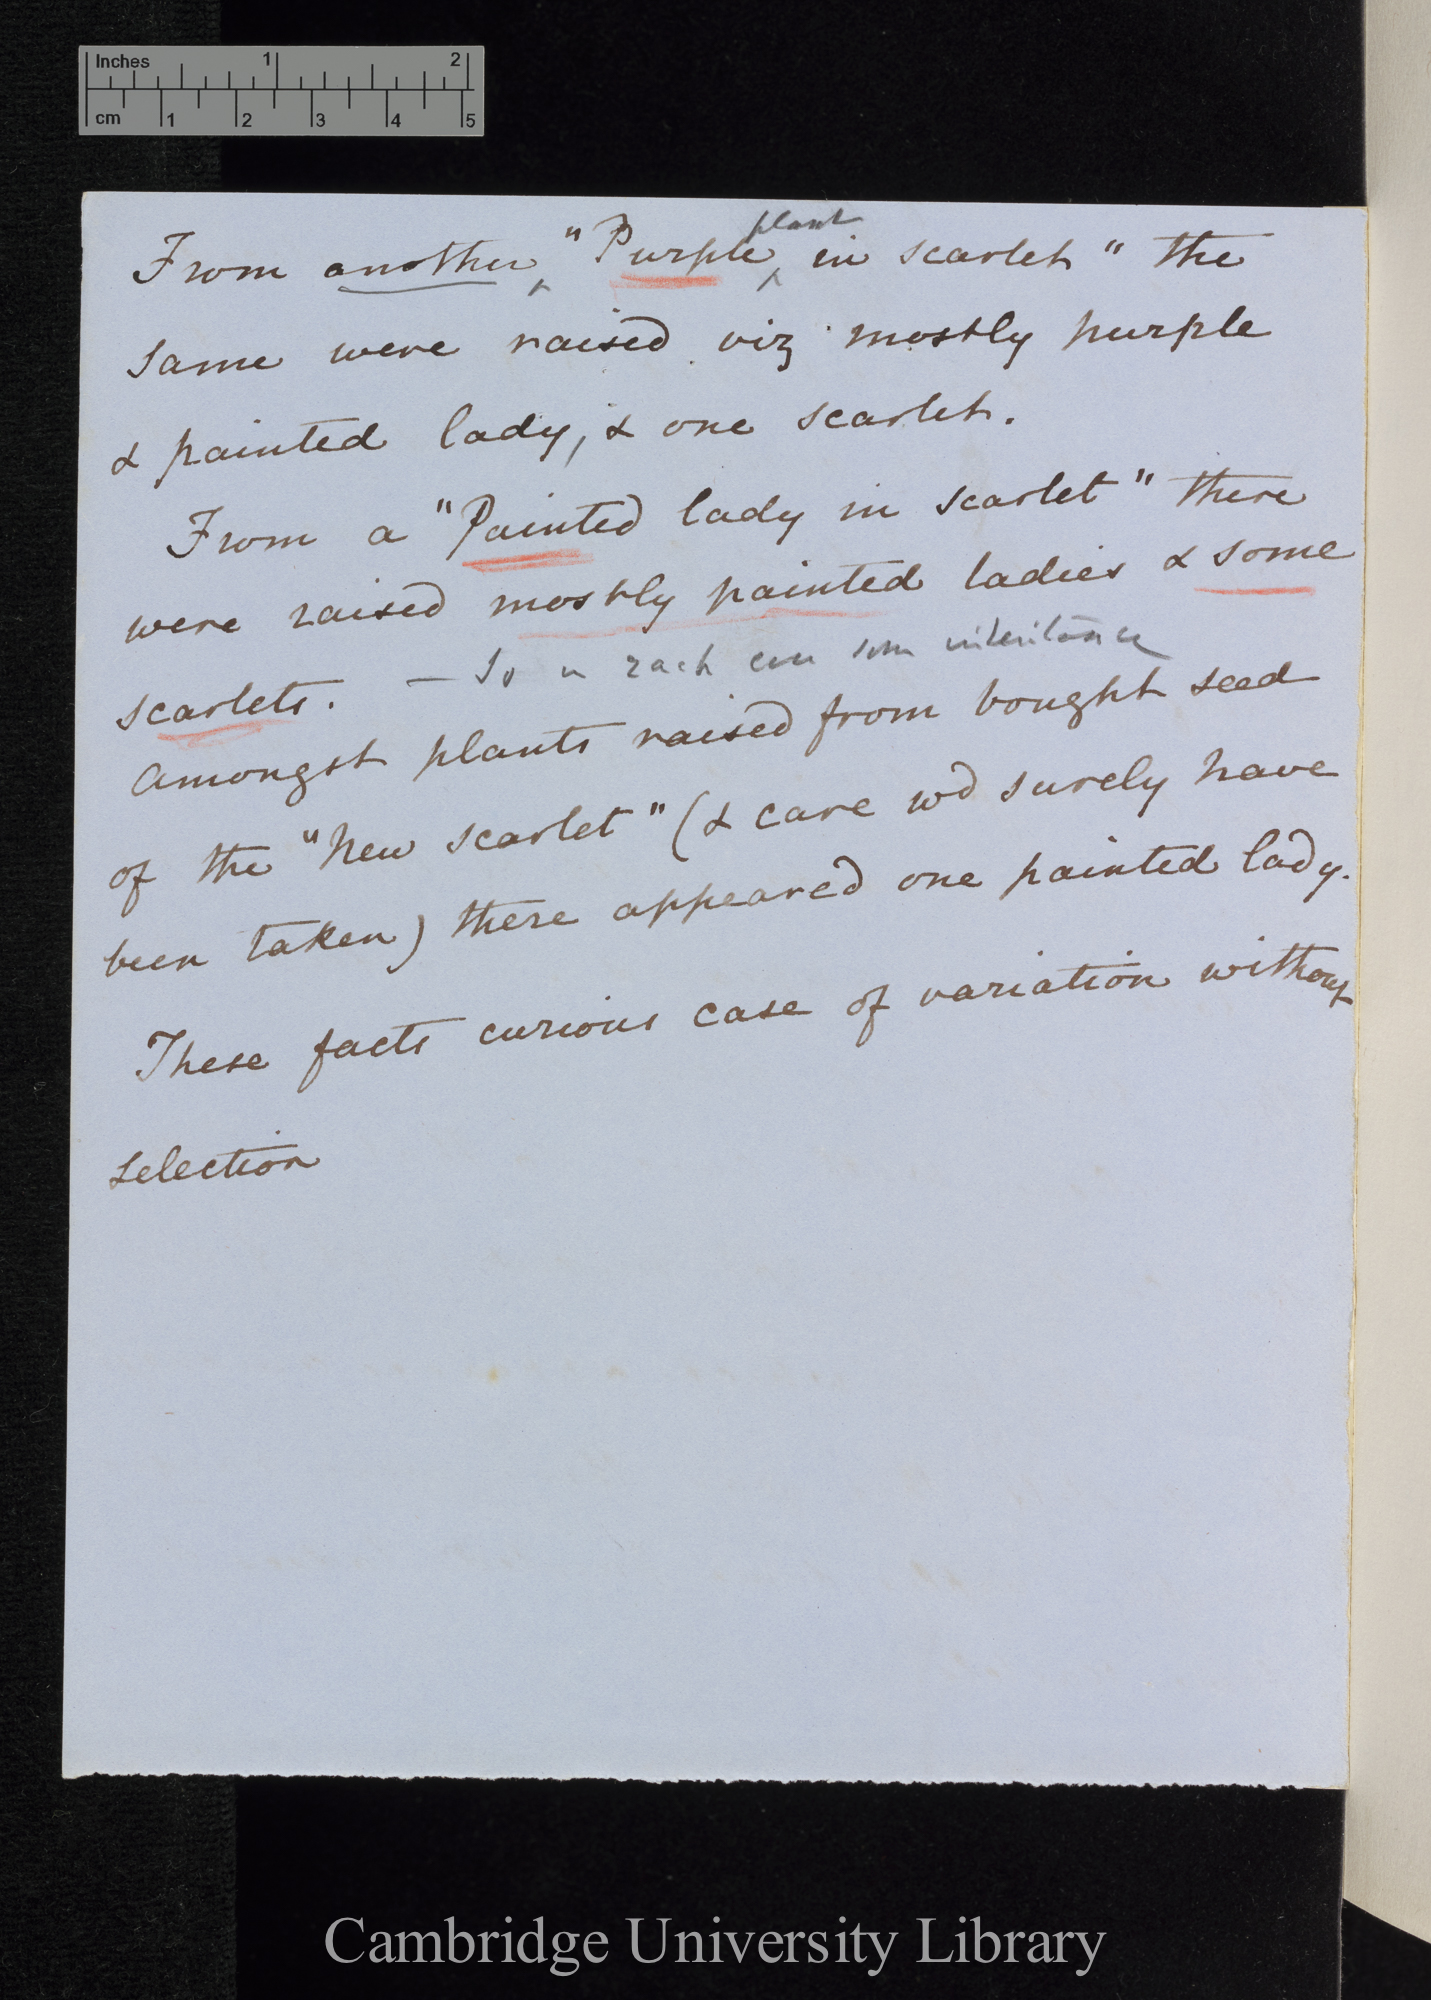 Inches 1 2
cm 1 2 3 4 5
plant
From another "Purple in scarlet" the
same were raised viz mostly purple
& painted lady, & one scarlet.
From a "Painted lady in scarlet" there
were raised mostly painted ladies & some
scarlets. — So in each case some inheritance
Amongst plants raised from bought seed
of the "New scarlet" (& care wd surely have
been taken) there appeared one painted lady.
These facts curious case of variation without
selection
Cambridge University Library